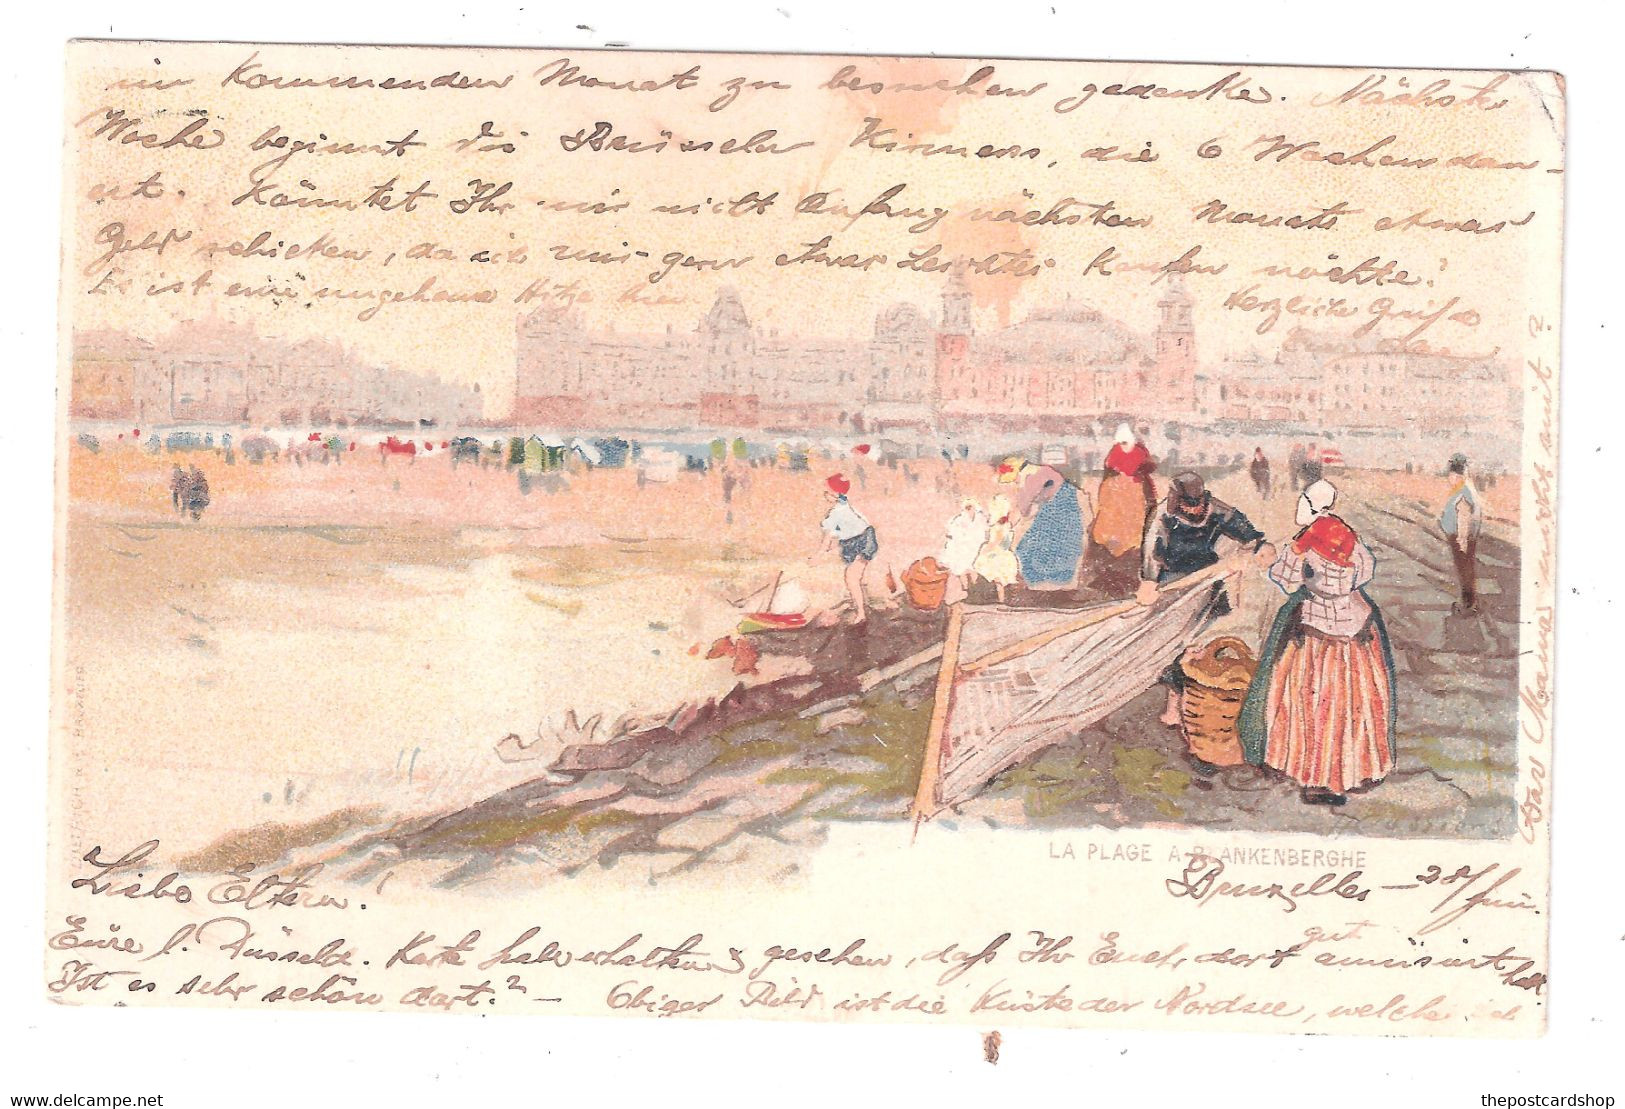 im kommenden Monat zu besuchen gedenke. Nächste
Woche beginnt die Brüsseler Kirmess, die 6 Wochen dau-
ert. Könntet Ihr mir nicht Anfang nächsten Monats etwas
Geld schicken, da ich mir gern etwas Leichtes kaufen möchte?
Es ist eine ungeheure Hitze hier. Herzliche Grüße
War Mama nicht mit?
LA PLAGE A BLANKENBERGHE
Bruxelles - 28/Juni.
Liebe Eltern!
Eure l. Düsseld. Karte habe erhalten & gesehen, daß Ihr Euch dort gut amüsiert habt.
Ist es sehr schön dort? - Obiges Bild ist die Küste der Nordsee, welche ich
www.delcampe.net
thepostcardshop